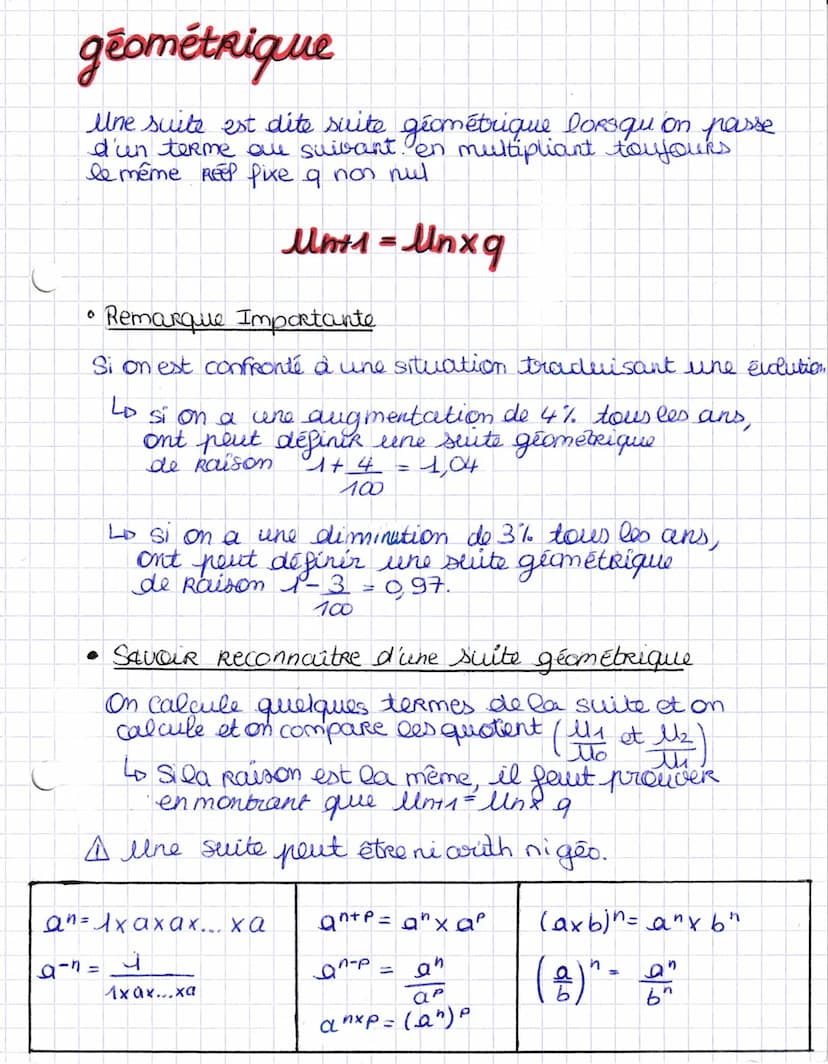 géométrique
Une suite est dite suite géométrique lorsqu'on passe
d'un terme au suivant en multipliant toujours
le même RÉEP fixe q non nul
Un+1 = Un x q
• Remarque Importante
Si on est confronté à une situation traduisant une évolution
↳ si on a une augmentation de 4% tous les ans,
ont peut définir une suite géométrique
de raison 1 + 4/100 = 1,04
↳ si on a une diminution de 3% tous les ans,
ont peut définir une suite géométrique
de raison 1 - 3/100 = 0,97.
• Savoir reconnaître d'une suite géométrique
On calcule quelques termes de la suite et on
calcule et on compare les quotent (U1/U0 et U2/U1)
↳ Si la raison est la même, il faut prouver
en montrant que Un+1 = Un x q
⚠ Une suite peut être ni arith ni géo.
aⁿ = 1 x a x a x... x a
a⁻ⁿ = 1/(1 x a x...x a)
aⁿ⁺ᵖ = aⁿ x aᵖ
aⁿ⁻ᵖ = aⁿ/aᵖ
aⁿˣᵖ = (aⁿ)ᵖ
(a x b)ⁿ = aⁿ x bⁿ
(a/b)ⁿ = aⁿ/bⁿ